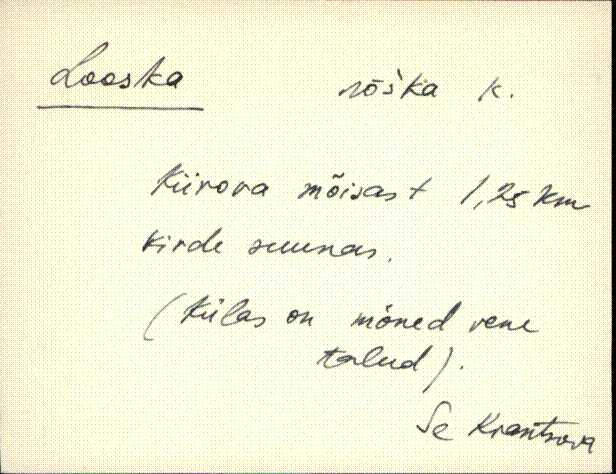 Looska rõška k.
Kiirova mõisast 1,25 km
kirde suunas.
(Külas on mõned vene
talud).
Se Krantsova